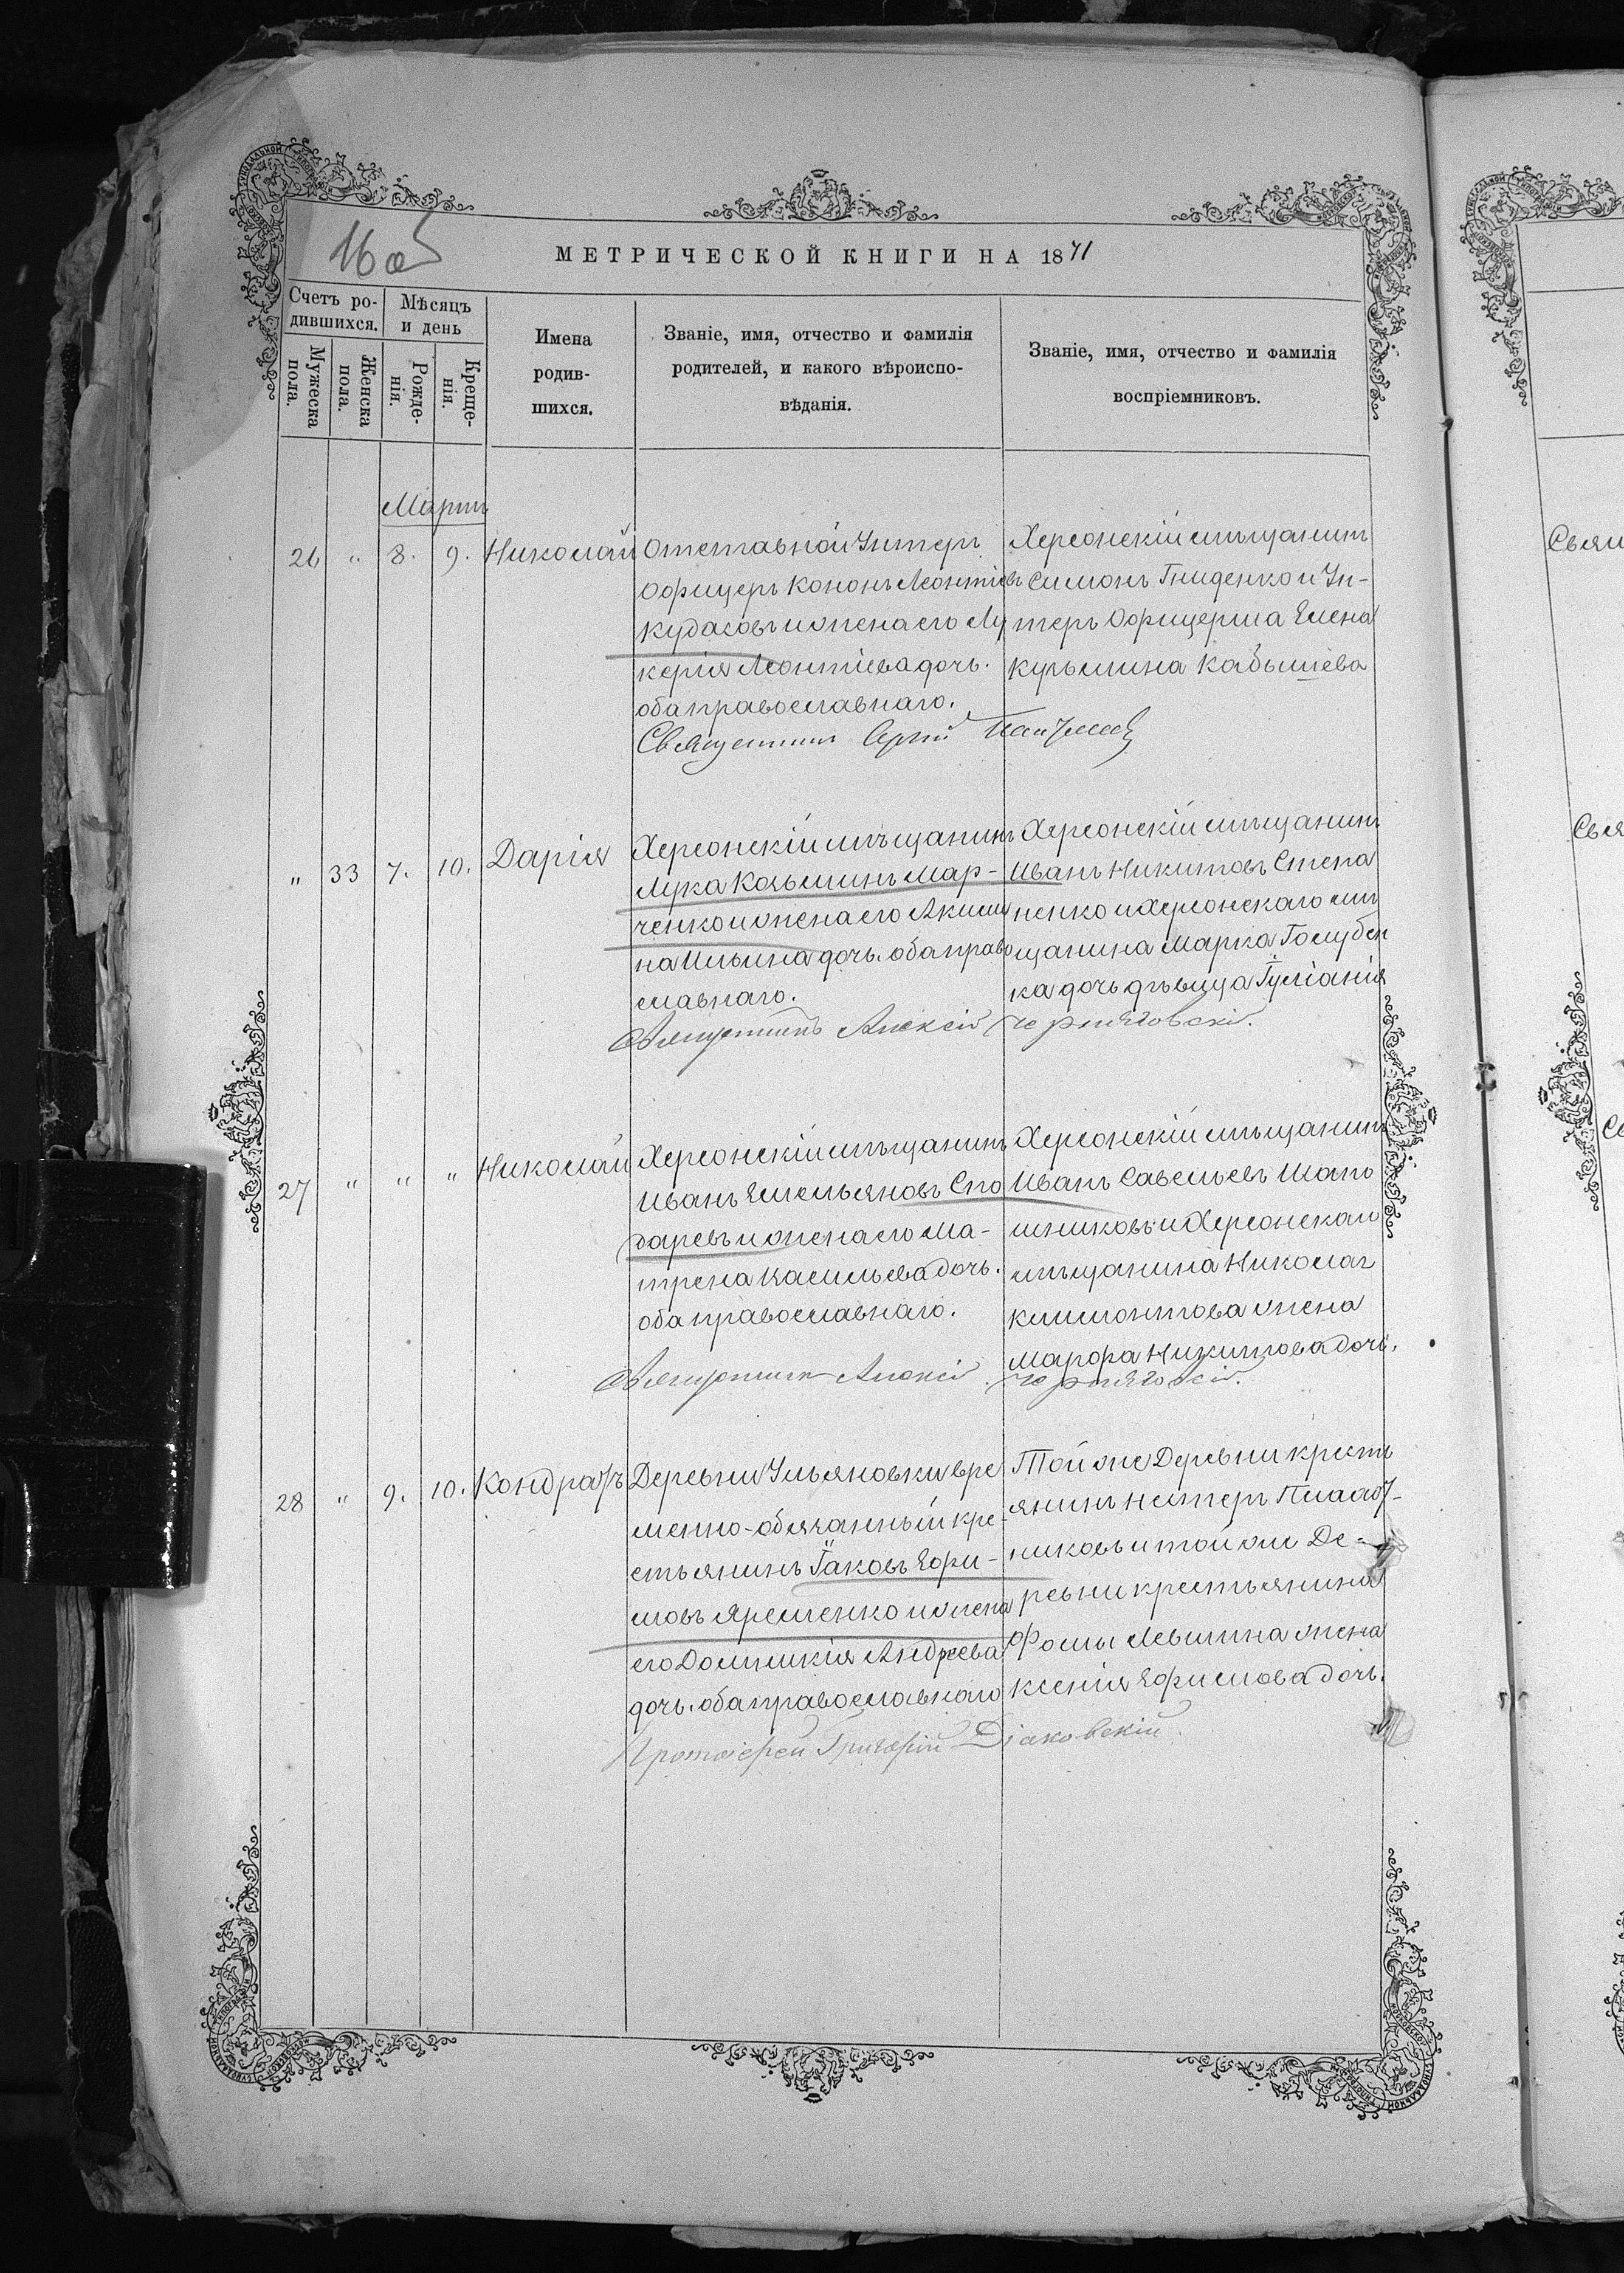 16 об
МЕТРИЧЕСКОЙ КНИГИ НА 1871
Счетъ ро-
дившихся.
Мужеска
пола.
Женска
пола.
Мѣсяцъ
и день
Рожде-
нія.
Креще-
нія.
Имена
родив-
шихся.
Званіе, имя, отчество и фамилія
родителей, и какого вѣроиспо-
вѣданія.
Званіе, имя, отчество и фамилія
воспріемниковъ.
Мартъ
26 " 8. 9. Николай
Отставной Унтеръ
Офицеръ Кононъ Леонтіевъ
Кудаковъ и жена его Лу
керія Леонтіева дочь.
оба православнаго.
Херсонскій мѣщанинъ
Симонъ Гниденко и Ун-
теръ Офицерша Елена
Кузьмина Кабышева
Священникъ Сергій
" 33 7. 10. Дарія
Херсонскій мѣщанинъ
Лука Козьминъ Мар-
ченко и жена его Акили
на Ильина дочь. оба право
славнаго.
Херсонскій мѣщанинъ
Иванъ Никитовъ Степа
ненко и Херсонскаго мѣ
щанина Марка Голубен
ка дочь дѣвица Іуліанія
Священникъ Алексій Черняховскій.
27 " " " Николай
Херсонскій мѣщанинъ
Иванъ Емельяновъ Спо
даревъ и жена его Ма-
трена Васильева дочь.
оба православнаго.
Херсонскій мѣщанинъ
Иванъ Савельевъ Шапо
шниковъ и Херсонскаго
мѣщанина Николая
Климонтова жена
Марфа Никитова дочь.
Священникъ Алексій Черняховскій.
28 " 9. 10. Кондратъ
Деревни Ульяновки вре
менно-обязанный кре-
стьянинъ Іаковъ Ефи-
мовъ Яременко и жена
его Домникія Андреева
дочь. оба православнаго
Той же Деревни кресть
янинъ Нестеръ
никовъ и той же Де-
ревни крестьянина
Фомы Левшина жена
Ксенія Ефимова дочь.
Протоіерей Григорій Діаковскій